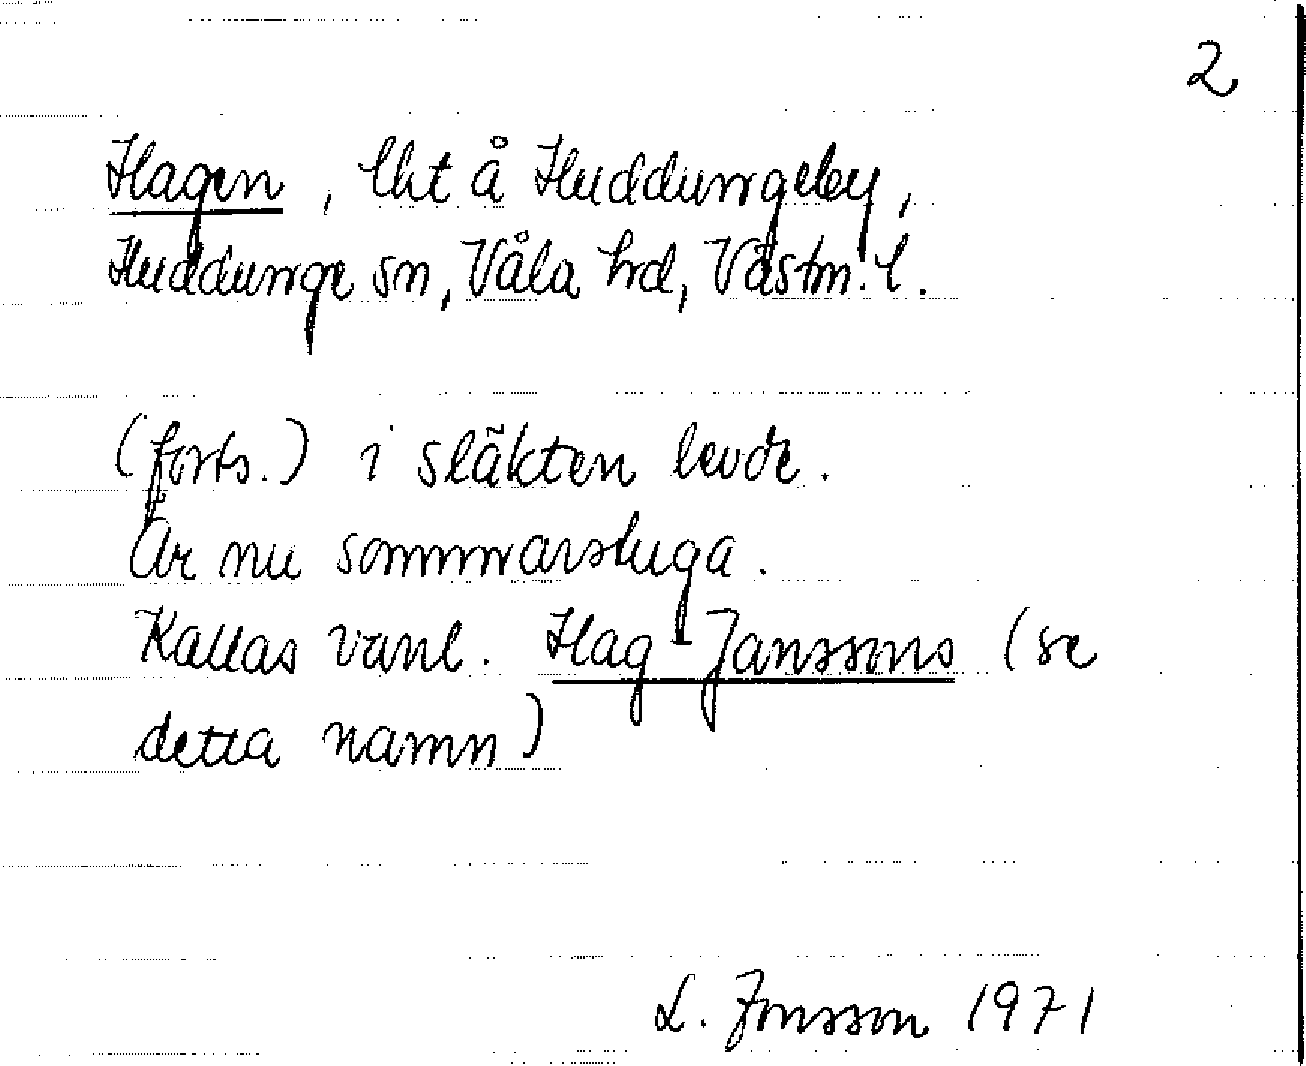 2
Hagen, lht å Huddungeby,
Huddunge sn, Våla hd, Västm. l.
(forts.) i släkten levde.
Är nu sommarstuga.
Kallas vanl. Hag-Janssons (se
detta namn)
L. Jonsson 1971